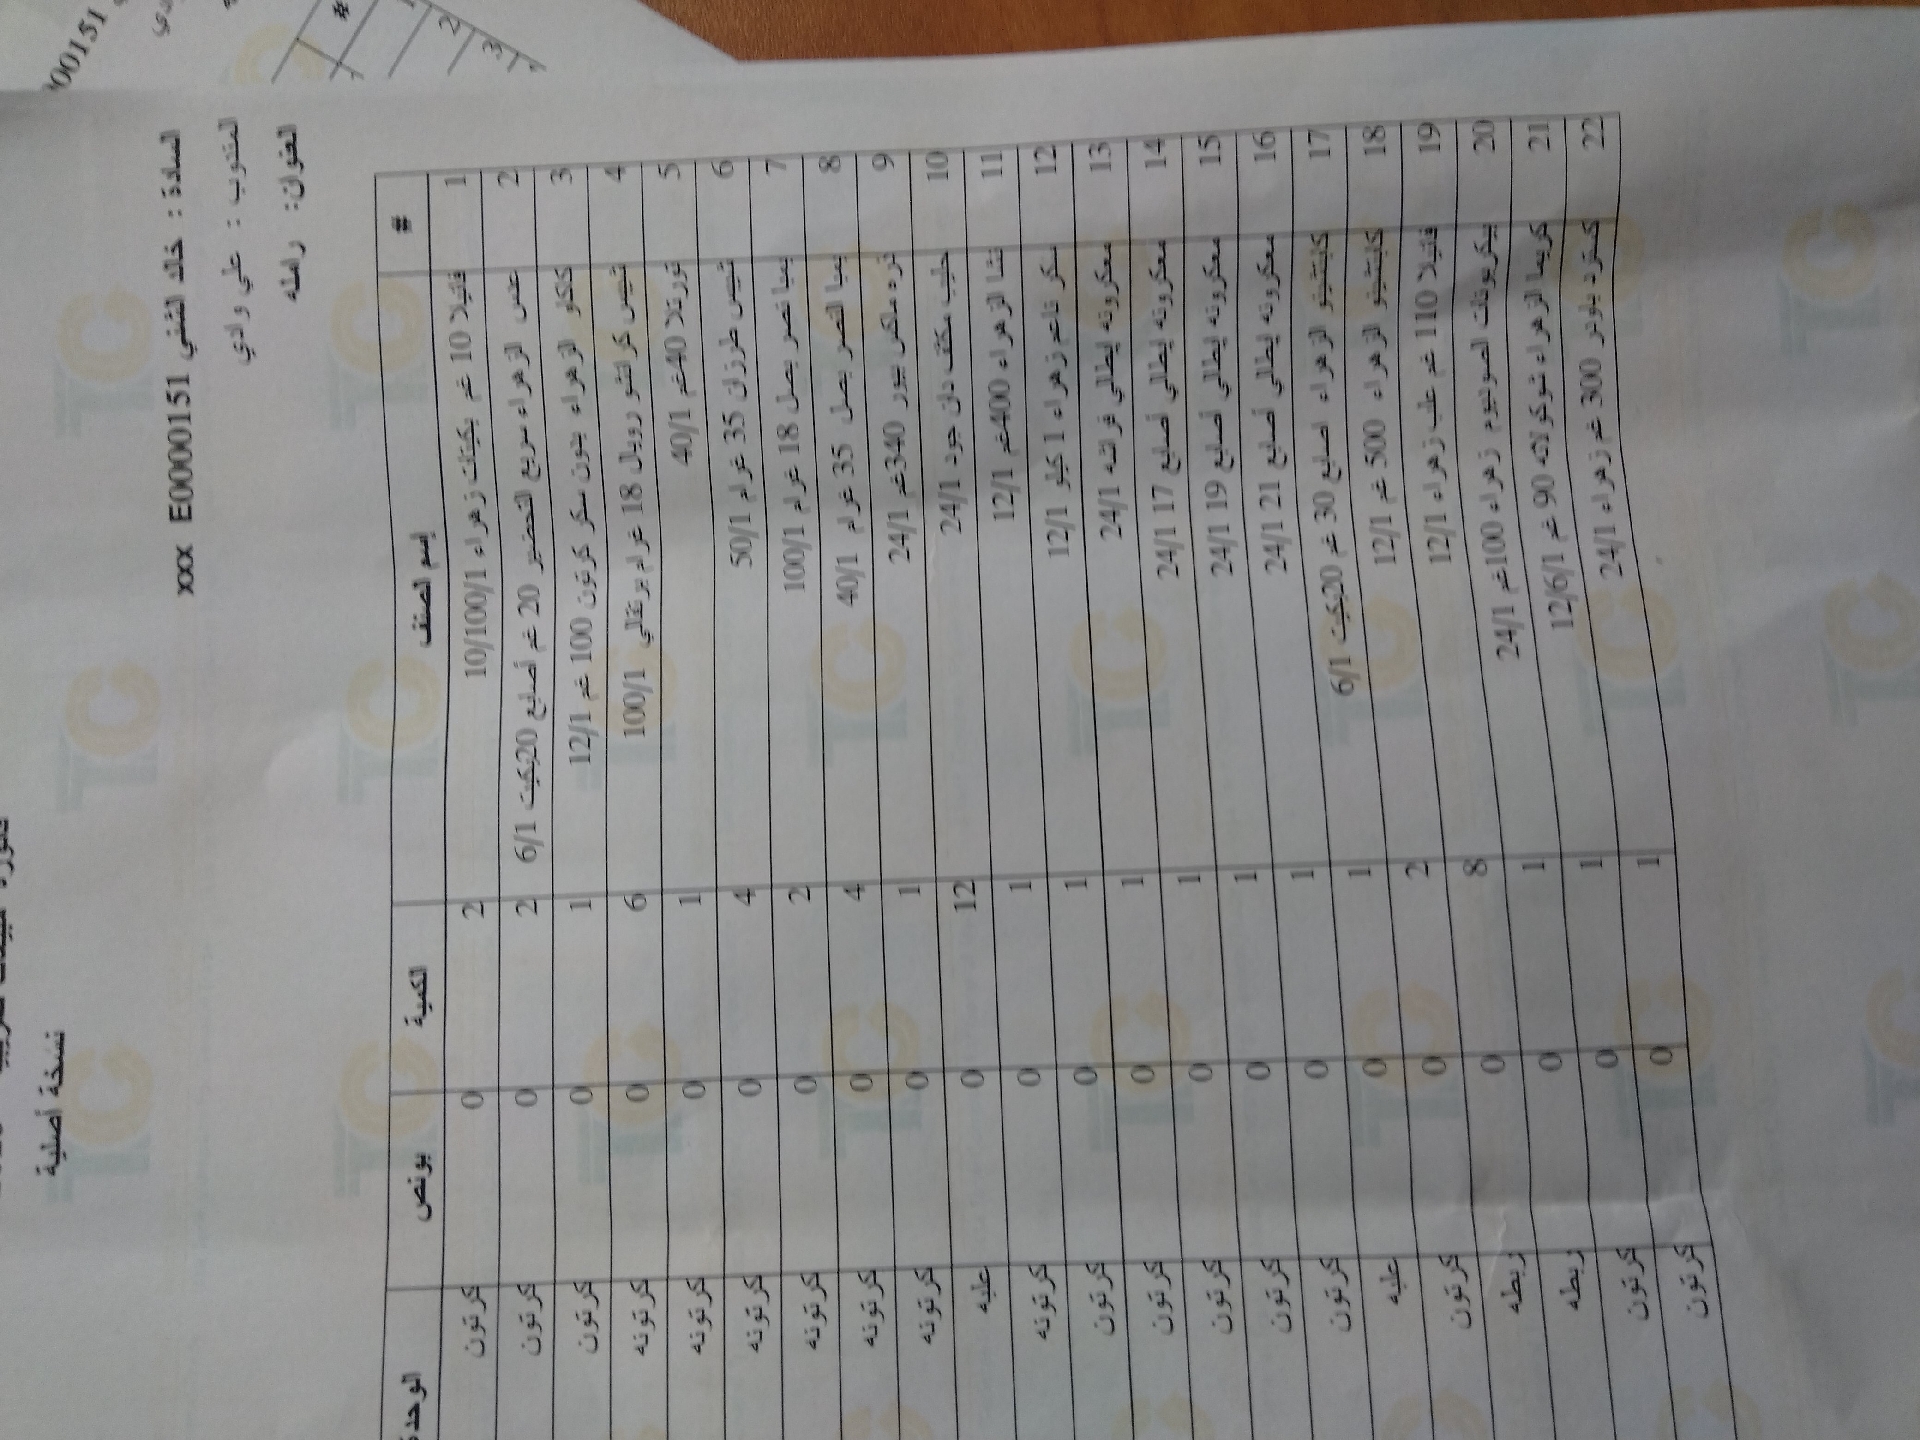 نسخة أصلية
السادة : خالد الشني E0000151 xxx
المندوب : علي وادي
العنوان: رام الله
# إسم الصنف الكمية بونص الوحدة
1 فانيلا 10 غم بكيتات زهراء 10/100/1 2 0 كرتون
2 عدس الزهراء سريع التحضير 20 غم أصابع 20بكيت 6/1 2 0 كرتون
3 كاكاو الزهراء بدون سكر كرتون 100 غم 12/1 1 0 كرتون
4 شيبس كرانشو رويال 18 غرام برتقالي 100/1 6 0 كرتونه
5 تورتلا 40غم 40/1 1 0 كرتونه
6 شيبس طرزان 35 غرام 50/1 4 0 كرتونه
7 بمبا نصر بصل 18 غرام 100/1 2 0 كرتونه
8 بمبا النصر بصل 35 غرام 40/1 4 0 كرتونه
9 ذره ملكس بيور 340غم 24/1 1 0 كرتونه
10 حليب مكثف دان جود 24/1 12 0 علبه
11 نشا الزهراء 400غم 12/1 1 0 كرتونه
12 سكر ناعم زهراء 1 كيلو 12/1 1 0 كرتون
13 معكرونه ايطالي فراشه 24/1 1 0 كرتون
14 معكرونه ايطالي أصابع 17 24/1 1 0 كرتون
15 معكرونه ايطالي أصابع 19 24/1 1 0 كرتون
16 معكرونه ايطالي أصابع 21 24/1 1 0 كرتون
17 كابتشينو الزهراء اصابع 30 غم 20بكيت 6/1 1 0 علبه
18 كابتشينو الزهراء 500 غم 12/1 2 0 كرتون
19 فانيلا 110 غم علب زهراء 12/1 8 0 ربطه
20 بيكربونات الصوديوم زهراء 100غم 24/1 1 0 ربطه
21 كريما الزهراء شوكولاته 90 غم 12/6/1 1 0 كرتون
22 كسترد باودر 300 غم زهراء 24/1 1 0 كرتون